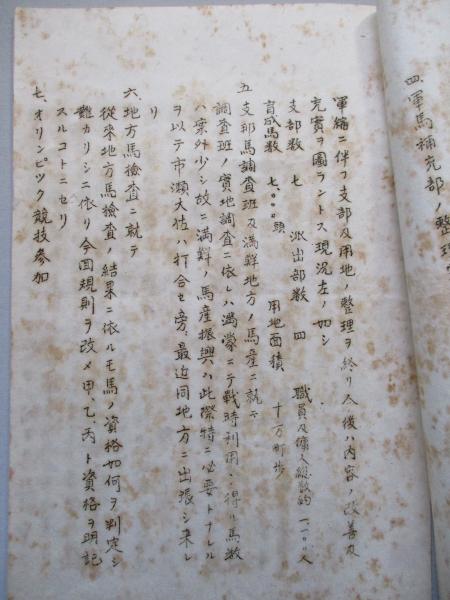 四、軍馬補充部ノ整理
軍縮ニ伴フ支部及用地ノ整理ヲ終リ今後ハ内容ノ改善及
充實ヲ圖ラントス現況左ノ如シ
支部数 七 派出部数 四 職員及傭人総数約一一〇〇人
育成馬数 七、〇〇〇頭 用地面積 十万町歩
五、支那馬調査班及満鮮地方ノ馬産ニ就テ
調査班ノ實地調査ニ依レハ満蒙ニテ戦時利用シ得ル馬数
ハ案外少シ故ニ満鮮ノ馬産振興ハ此際特ニ必要トナレル
ヲ以テ市瀬大佐ハ打合セ旁、最近同地方ニ出張シ来レ
リ
六、地方馬検査ニ就テ
従來地方馬検査ノ結果ニ依ルモ馬ノ資格如何ヲ判定シ
難カリシニ依リ今回規則ヲ改メ甲、乙、丙ト資格ヲ明記
スルコトニセリ
七、オリンピック競技参加